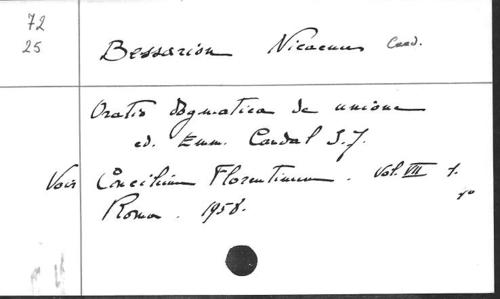 72
25
Bessarion Nicaenus Card.
Oratio dogmatica de unione
ed. Emm. Candal S.J.
Voir Concilium Florentinum. Vol. VII f.
Roma. 1958.